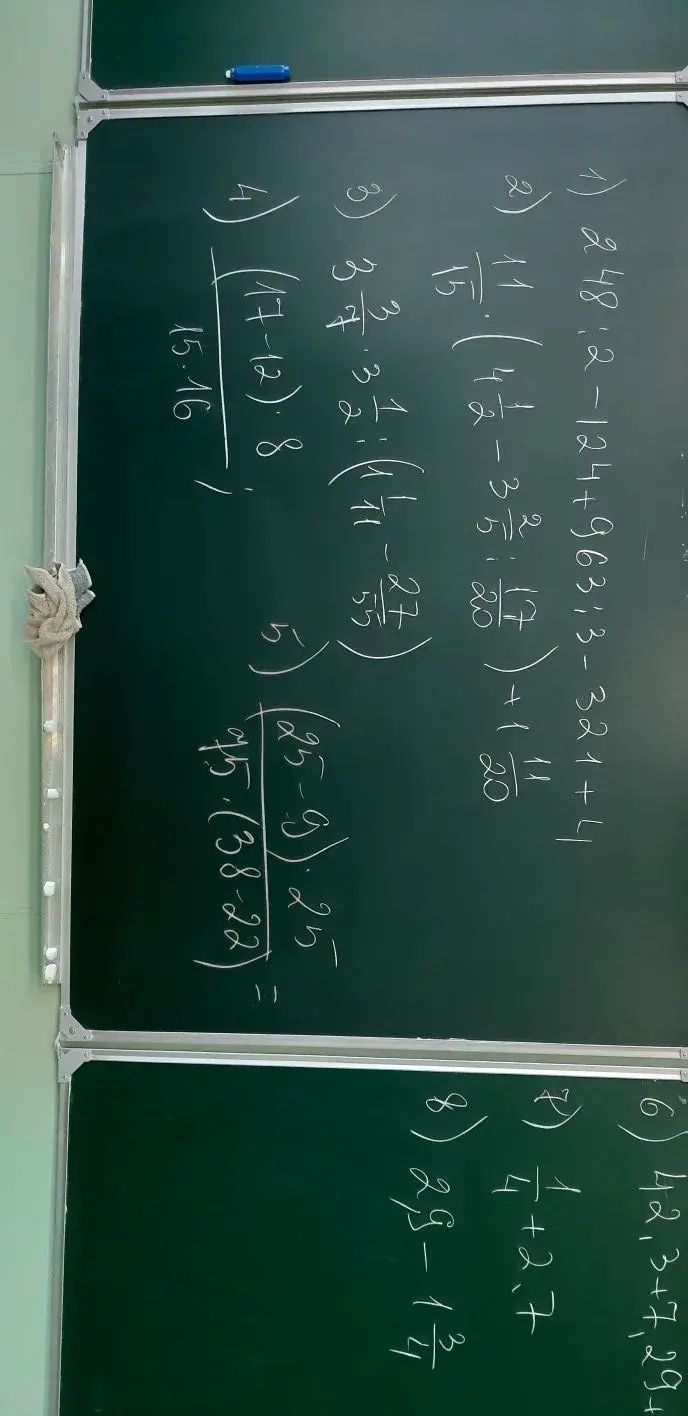 1) 248:2-124+963:3-321+4
2) 11/15 · (4 1/2 - 3 2/5 : 17/20) + 1 11/20
3) 3 3/7 · 3 1/2 : (1 1/11 - 27/55)
4) (17-12)·8 / 15·16 ;
5) (25-9)·25 / 75·(38-22) =
6) 42,3+7,29+
7) 1/4 + 2,7
8) 2,9 - 1 3/4